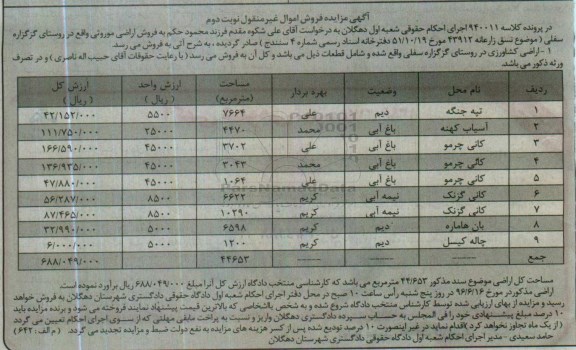 آگهی مزایده فروش اموال غیرمنقول نوبت دوم
در پرونده کلاسه ۹۴۰۰۱۱ اجرای احکام حقوقی شعبه اول دهگلان به درخواست آقای علی شکوه مقدم فرزند محمود حکم به فروش اراضی موروثی واقع در روستای گزگزاره
سفلی ( موضوع نسق زارعانه ۴۳۹۱۲ مورخ ۵۱/۱۰/۱۹ دفترخانه اسناد رسمی شماره ۴ سنندج ) صادر گردیده ، به شرح آتی به فروش می رسد.
۱ -اراضی کشاورزی در روستای گزگزاره سفلی واقع شده و شامل قطعات ذیل می باشد و کل آن به فروش می رسد ( با رعایت حقوقات آقای حبیب اله ناصری ) و در تصرف
ورثه ذکور می باشد.
ردیف نام محل وضعیت بهره بردار مساحت (مترمربع) ارزش واحد ( ریال ) ارزش کل ( ریال )
۱ تپه جنگه دیم علی ۷۶۶۴ ۵۵۰۰ ۴۲/۱۵۲/۰۰۰
۲ آسیاب کهنه باغ آبی محمد ۴۴۷۰ ۲۵۰۰۰ ۱۱۱/۷۵۰/۰۰۰
۳ کانی چرمو باغ آبی علی ۳۷۰۲ ۴۵۰۰۰ ۱۶۶/۵۹۰/۰۰۰
۴ کانی چرمو باغ آبی محمد ۳۰۴۳ ۴۵۰۰۰ ۱۳۶/۹۳۵/۰۰۰
۵ کانی چرمو باغ آبی علی ۱۰۶۴ ۴۵۰۰۰ ۴۷/۸۸۰/۰۰۰
۶ کانی گزنک نیمه آبی کریم ۶۶۲۲ ۸۵۰۰ ۵۶/۲۸۷/۰۰۰
۷ کانی گزنک نیمه آبی کریم ۱۰۲۹۰ ۸۵۰۰ ۸۷/۴۶۵/۰۰۰
۸ بان هاماره دیم کریم ۶۵۹۸ ۵۰۰۰ ۳۲/۹۹۰/۰۰۰
۹ چاله کیسل دیم کریم ۱۲۰۰ ۵۰۰۰ ۶/۰۰۰/۰۰۰
جمع ۴۴۶۵۳ ۶۸۸/۰۴۹/۰۰۰
مساحت کل اراضی موضوع سند مذکور ۴۴/۶۵۳ مترمربع می باشد که کارشناسی منتخب دادگاه ارزش کل آنرا مبلغ ۶۸۸/۰۴۹/۰۰۰ ریال برآورد نموده است.
اراضی مذکور در مورخ ۹۶/۶/۱۶ در روز پنج شنبه رأس ساعت ۱۰ صبح در محل دفتر اجرای احکام شعبه اول دادگاه حقوقی دادگستری شهرستان دهگلان به فروش خواهد
رسید و مزایده از بهای ارزیابی شده توسط کارشناس منتخب دادگاه شروع شده و به شخص یااشخاصی که بالاترین قیمت پیشنهاد نمایند فروخته می شود و برنده مزایده باید
۱۰ درصد مبلغ پیشنهادی خود را فی المجلس به حساب سپرده دادگستری دهگلان واریز و نسبت به پراخت مابقی مهلتی که از سوی اجرای احکام تعیین می گردد
( از یک ماه تجاوز نخواهد کرد )اقدام نماید در غیر اینصورت ۱۰ درصد تودیع شده پس از کسر هزینه های مزایده به نفع دولت ضبط و مزایده تجدید می گردد. ( م الف: ۶۴۲ )
حامد سعیدی - مدیر اجرای احکام شعبه اول دادگاه حقوقی دادگستری شهرستان دهگلان